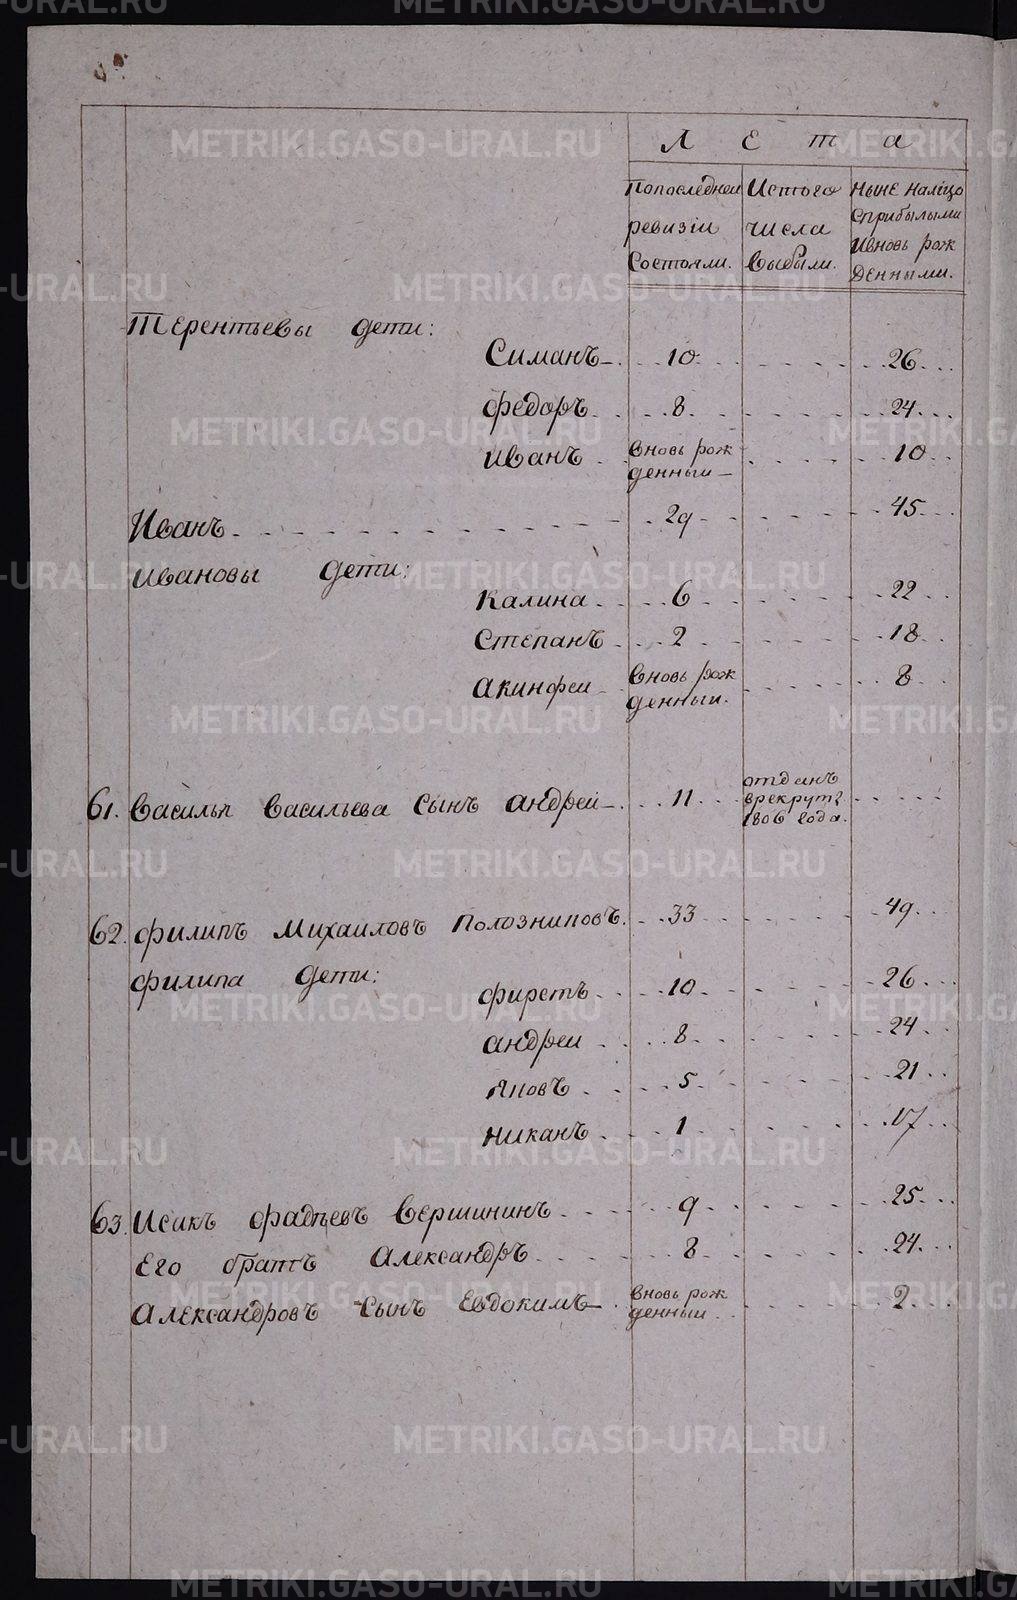 Лета
Попоследнеи ревизiи состояли.
Истого числа выбыли.
Ныне налiцо сприбылыми ивновь рожденными.
Терентьевы дети:
Симанъ 10 26
федоръ 8 24
иванъ вновь рожденныи 10
Иванъ 29 45
ивановы дети:
Калина 6 22
Степанъ 2 18
акинфеи вновь рожденныи. 8
61. Василья Васильева сынъ андреи 11 отданъ врекруты 1806 года.
62. филипъ Михаиловъ Полозниповъ. 33 49
филипа дети:
фирстъ 10 26
андреи 8 24
яповъ 5 21
никанъ 1 17
63. Исакъ фадѣевъ Вершининъ 9 25
Его братъ Александръ 8 24
Александровъ сынъ Евдокимъ вновь рожденныи 2
METRIKI.GASO-URAL.RU